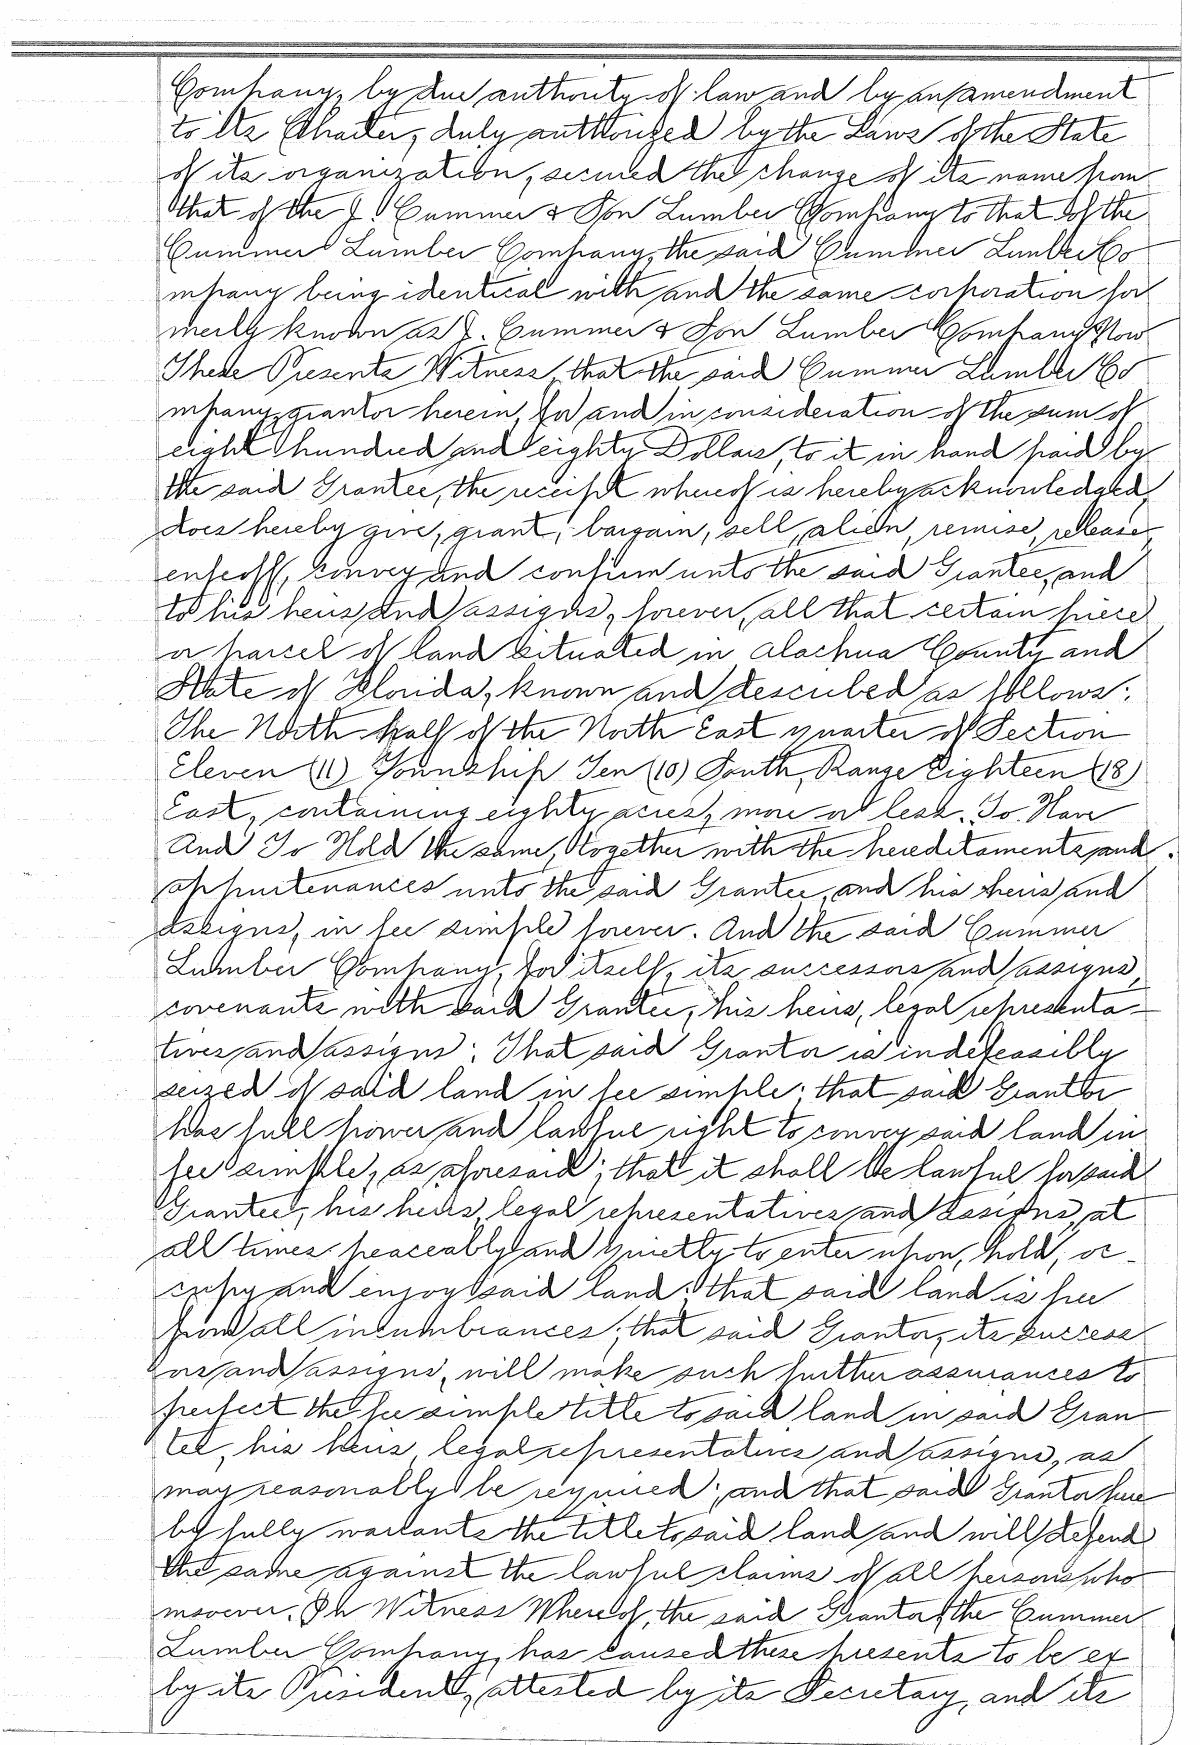 Company, by due authority of law and by an amendment
to its Charter, duly authorized by the Laws of the State
of its organization, secured the change of its name from
that of the J. Cummer & Son Lumber Company to that of the
Cummer Lumber Company, the said Cummer Lumber Co
mpany being identical with and the same corporation for
merly known as J. Cummer & Son Lumber Company Now
These Presents Witness, that the said Cummer Lumber Co
mpany, grantor herein, for and in consideration of the sum of
eight hundred and eighty Dollars, to it in hand paid by
the said Grantee, the receipt whereof is hereby acknowledged,
does hereby give, grant, bargain, sell, alien, remise, release,
enfeoff, convey and confirm unto the said Grantee, and
to his heirs and assigns, forever, all that certain piece
or parcel of land situated in Alachua County and
State of Florida, known and described as follows:
The North half of the North East quarter of Section
Eleven (11) Township Ten (10) South, Range Eighteen (18)
East, containing eighty acres, more or less. To Have
And To Hold the same, together with the hereditaments and
appurtenances unto the said Grantee, and his heirs and
assigns, in fee simple forever. And the said Cummer
Lumber Company, for itself, its successors and assigns,
covenants with said Grantee, his heirs, legal representa-
tives and assigns: That said Grantor is indefeasibly
seized of said land in fee simple; that said Grantor
has full power and lawful right to convey said land in
fee simple, as aforesaid; that it shall be lawful for said
Grantee, his heirs, legal representatives and assigns, at
all times peaceably and quietly to enter upon, hold, oc-
cupy and enjoy said land; that said land is free
from all incumbrances; that said Grantor, its success
ors and assigns, will make such further assurances to
perfect the fee simple title to said land in said Gran
tee, his heirs, legal representatives and assigns, as
may reasonably be required; and that said Grantor here
by fully warrants the title to said land and will defend
the same against the lawful claims of all persons who
msoever. In Witness Whereof, the said Grantor, the Cummer
Lumber Company, has caused these presents to be ex
by its President, attested by its Secretary, and its